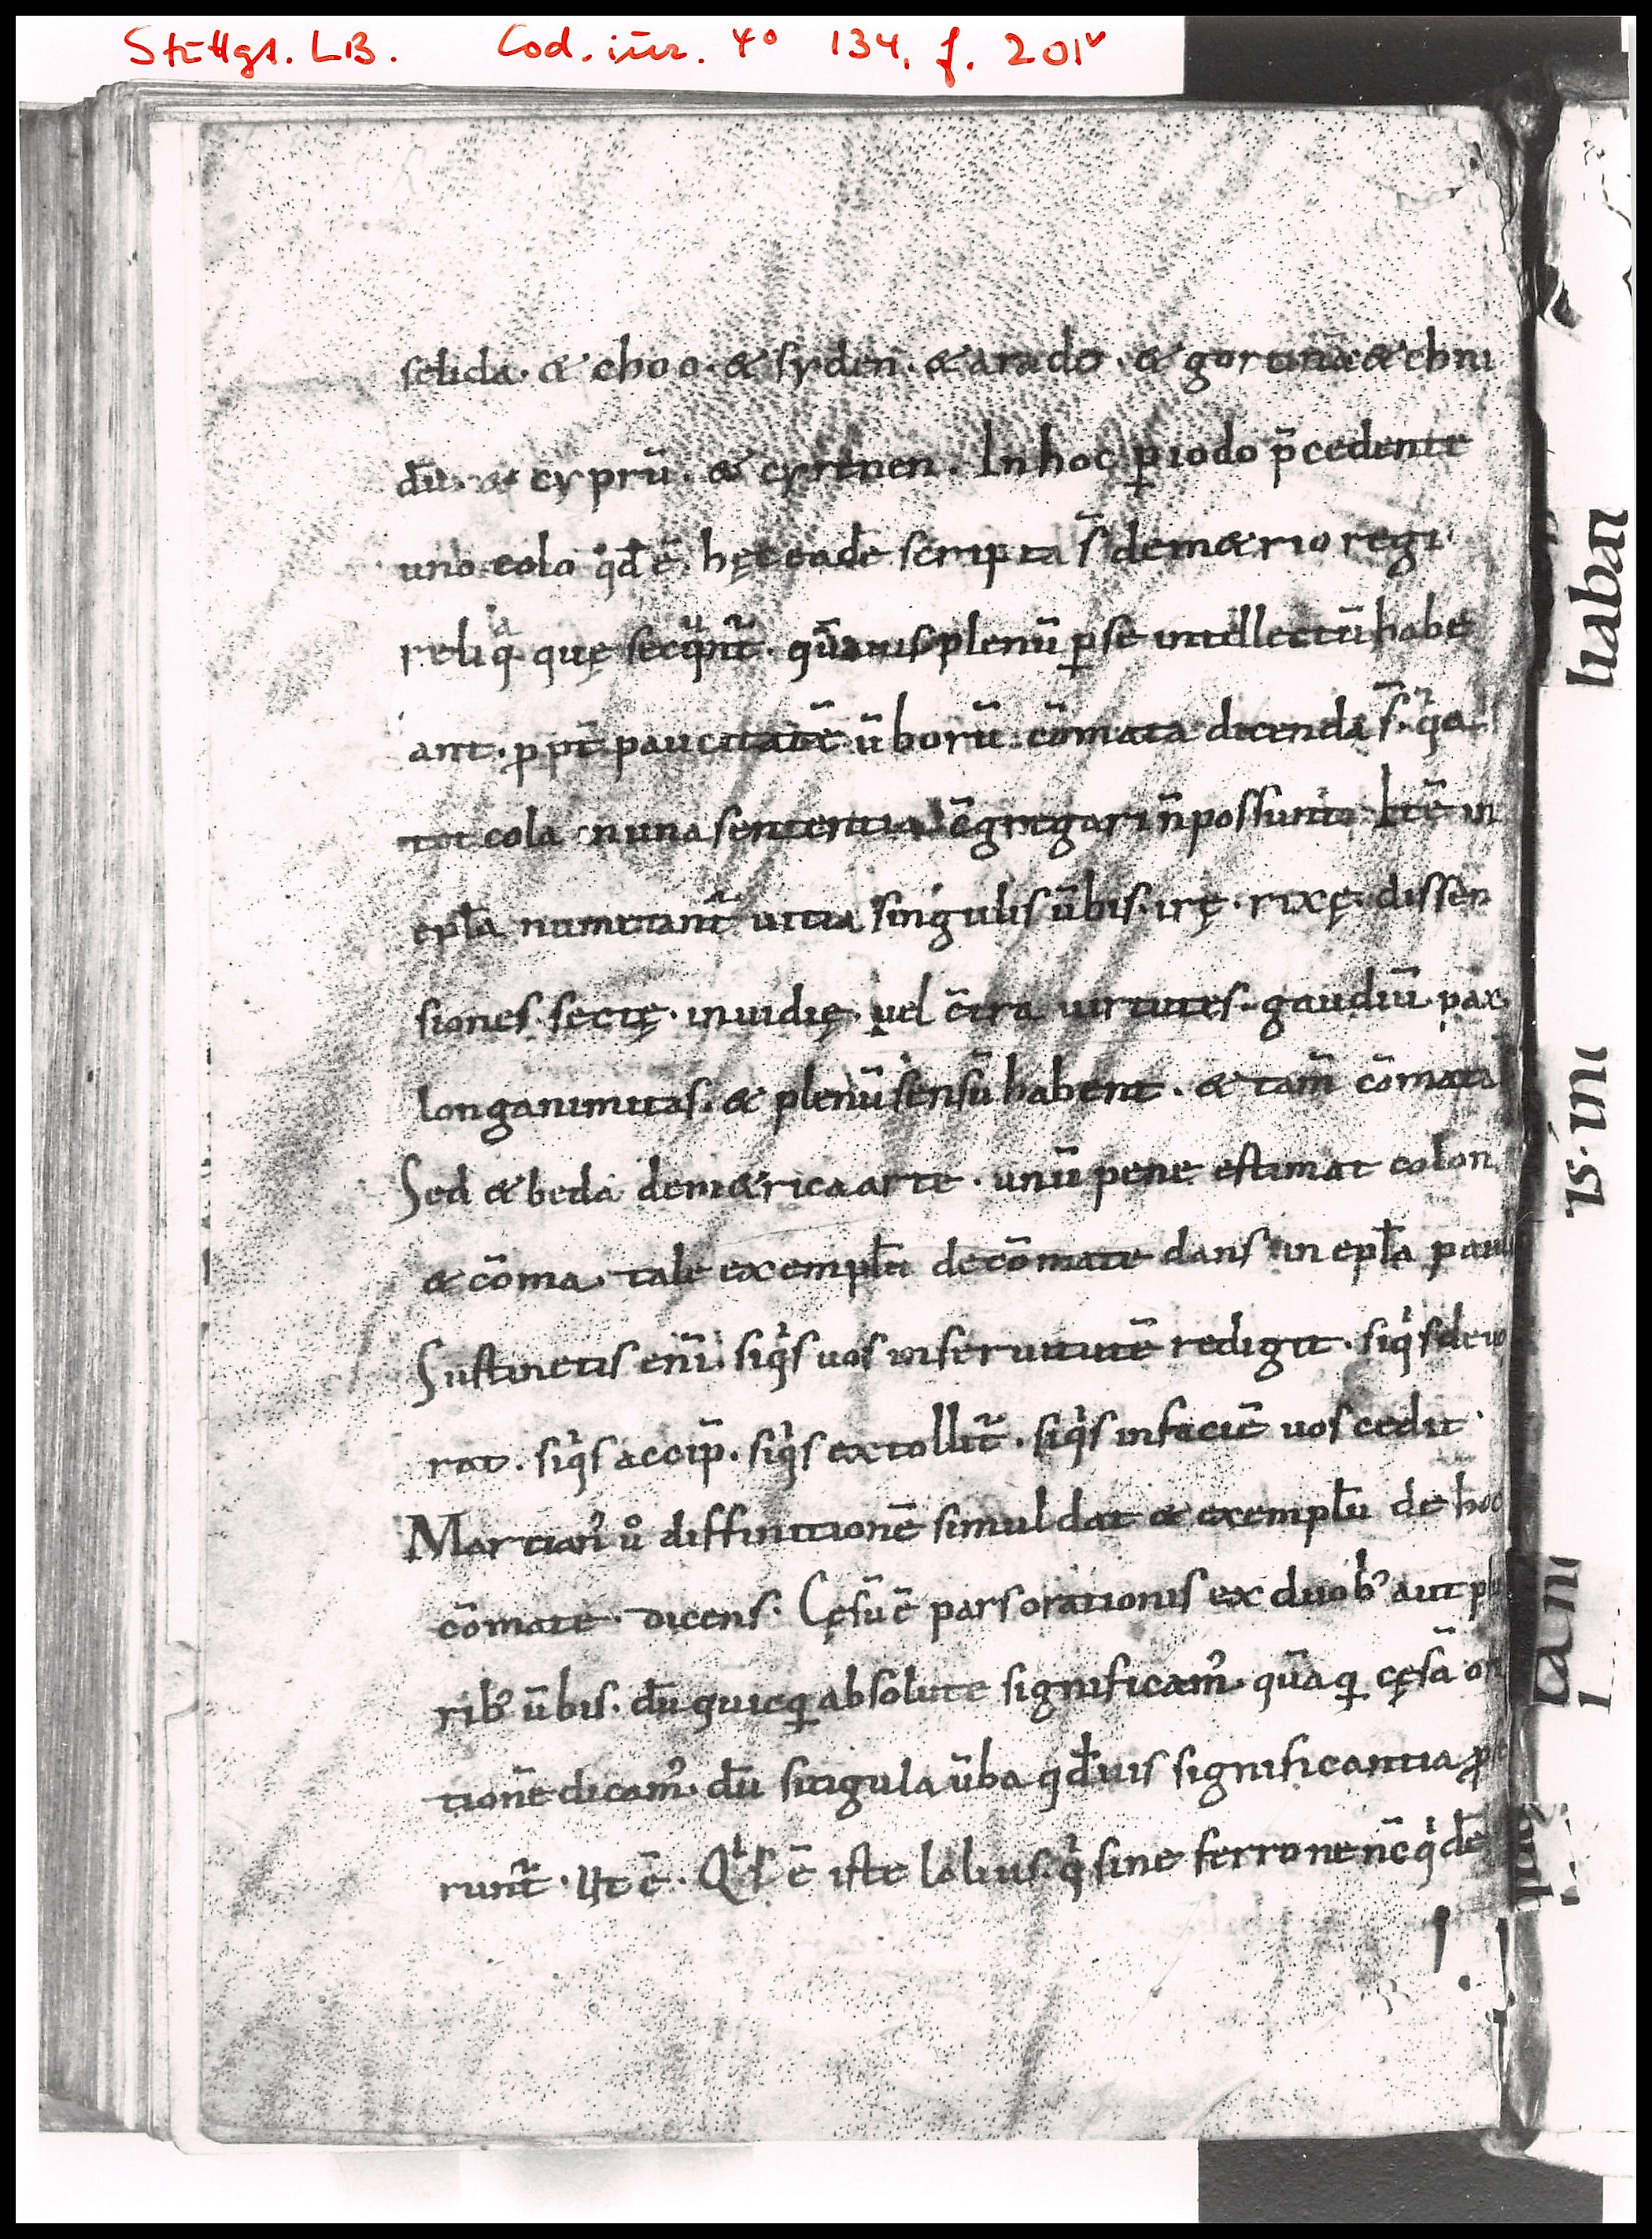 Stuttgt. LB. Cod. iur. 4° 134, f. 201v
selida· & choo· & syden· & arado· & gortinā & chni
dū· & cyprū· & cyrenen· In hoc p̱iodo p̄cedente
uno colo qd̄ ē· hęc eadē scripta s̄ demetrio regi·
reliqͣ quę secuͣnt᷑· qūauis plenū p̱ se intellectū habe
ant· ꝓpt̄ paucitatē ūborū· cōmata dicenda s̄· qͥa
tot cola in una sententia c̄gregari n̄ possunt· Itē in
epl̄a numerant᷑ uitia singulis ūbis· irę· rixę· dissen
siones· sectę· inuidię· uel c̄tra uirtutes· gaudiū· pax·
longanimitas· & plenū sensū habent· & tam̄ cōmata
Sed & beda de metrica arte· unū pene estimat colon
& cōma· tale exemplū de cōmate dans in epl̄a pauli
Sustinetis eni̅· siqͥs uos in seruitutē redigit· siqͥs deuo
rat· siqͥs accip̄· siqͥs extollit᷑· siqͥs in faciē uos cedit·
Martian᾽ uͦ diffinitionē simul dat & exemplū de hoc
cōmate· dicens· Cęsū ē pars orationis ex duob᾽ aut plu
rib᾽ ūbis· dū quicq̱ absolute significam᾽· qūaq̱ cęsā or
tionē dicam᾽· dū singula ūba qd̄uis significantia ꝓfe
runt᷑· Ut ē· Qͥs ē iste lolius· qͥ sine ferro ne nc̄ qͥdē
haban
is· ini